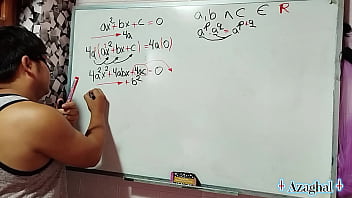 ax²+bx+c=0
4a
4a(ax²+bx+c)=4a(0)
4a²x²+4abx+4ac=0
+b²
a,b ∧ c ∈ R
aᵖ·a^q=a^(p+q)
Azaghal